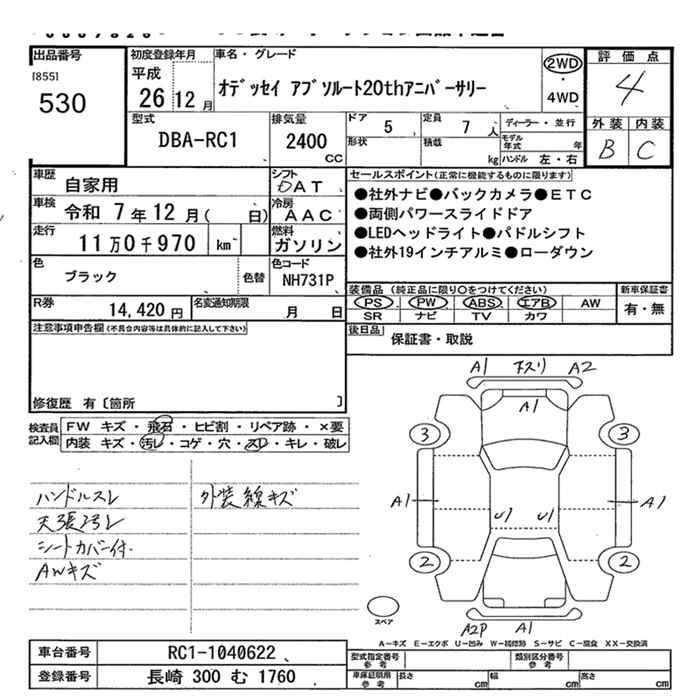 出品番号
[855]
530
初度登録年月
平成
26 12 月
車名・グレード
オデッセイ アブソルート20thアニバーサリー
2WD
・
4WD
評価点
4
外装 内装
B C
型式
DBA-RC1
排気量
2400
CC
ドア
5
形状
定員
7 人
積載
kg
ディーラー・並行
モデル
年式 年
ハンドル 左・右
車歴
自家用
シフト
DAT
車検
令和 7年12月( 日)
冷房
AAC
走行
11万0千970 km
燃料
ガソリン
色
ブラック
色替
色コード
NH731P
R券
14,420 円
名変通知期限
月 日
セールスポイント(正常に機能するものに限ります)
●社外ナビ●バックカメラ●ETC
●両側パワースライドドア
●LEDヘッドライト●パドルシフト
●社外19インチアルミ●ローダウン
装備品 (純正品に限り○をつけてください)
PS PW ABS エアB AW
SR ナビ TV カワ
新車保証書
有・無
後日品
保証書・取説
注意事項申告欄(不具合内容等は具体的に記入して下さい)
修復歴 有〔箇所 〕
検査員
記入欄
FW キズ・飛石・ヒビ割・リペア跡・×要
内装 キズ・汚レ・コゲ・穴・スレ・キレ・破レ
ハンドルスレ
天張汚レ
シートカバー付.
AWキズ
外装線キズ
A1 下スリ A2
A1
3 3
A1 A1
U1 U1
2 2
スペア
A2P A1
A－キズ E－エクボ U－凹み W－補修跡 S－サビ C－腐食 XX－交換済
車台番号
RC1-1040622
登録番号
長崎 300 む 1760
型式指定番号
参考
類別区分番号
参考
車庫証明用
参考
長さ cm
幅 cm
高さ cm